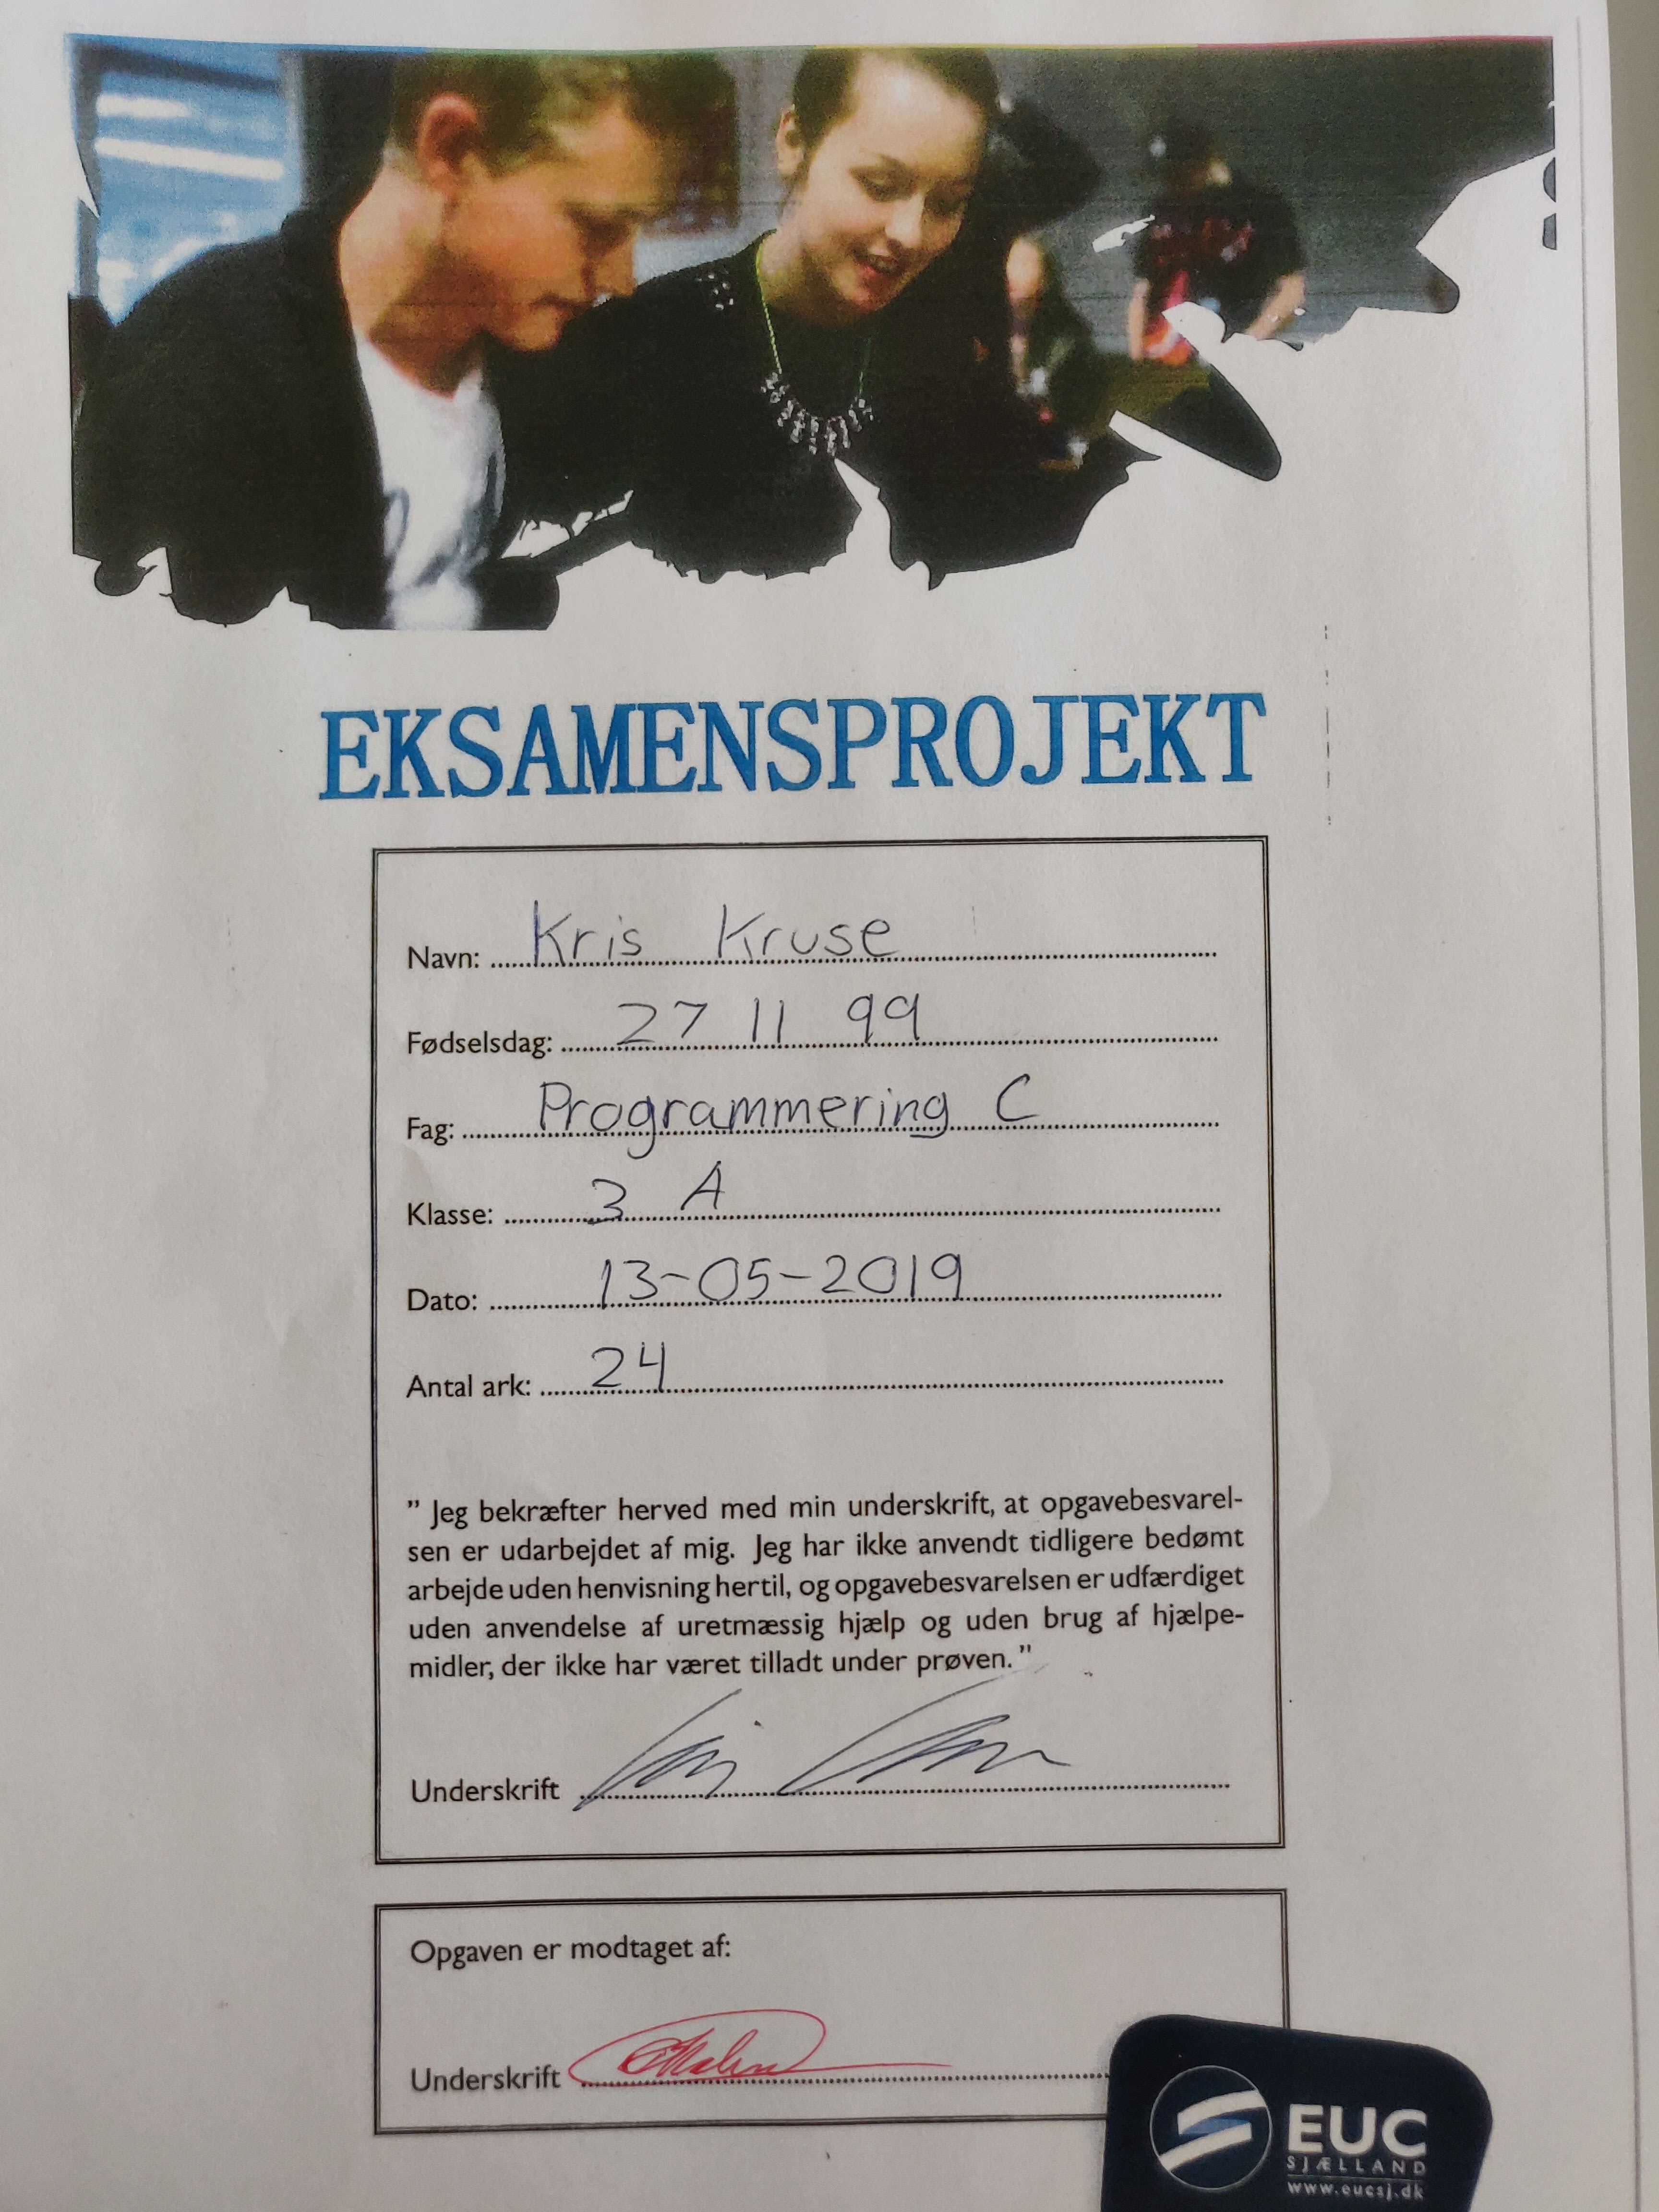 EKSAMENSPROJEKT
Navn: Kris Kruse
Fødselsdag: 27 11 99
Fag: Programmering C
Klasse: 3 A
Dato: 13-05-2019
Antal ark: 24
” Jeg bekræfter herved med min underskrift, at opgavebesvarel-
sen er udarbejdet af mig. Jeg har ikke anvendt tidligere bedømt
arbejde uden henvisning hertil, og opgavebesvarelsen er udfærdiget
uden anvendelse af uretmæssig hjælp og uden brug af hjælpe-
midler, der ikke har været tilladt under prøven. ”
Underskrift
Opgaven er modtaget af:
Underskrift
EUC
SJÆLLAND
www.eucsj.dk